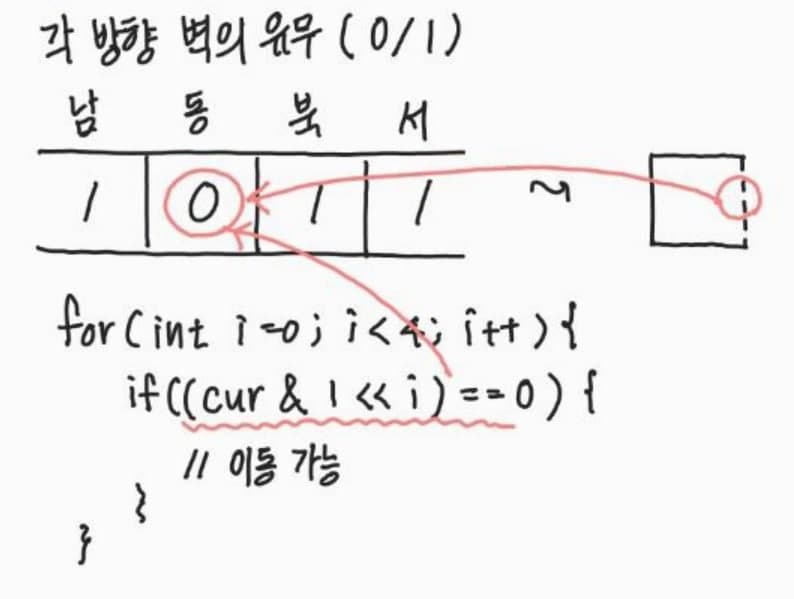 각 방향 벽의 유무 ( 0 / 1 )
남 동 북 서
1 0 1 1 ~
for ( int i =0 ; i < 4 ; i++ ) {
if ( ( cur & 1 << i ) == 0 ) {
// 이동 가능
}
}